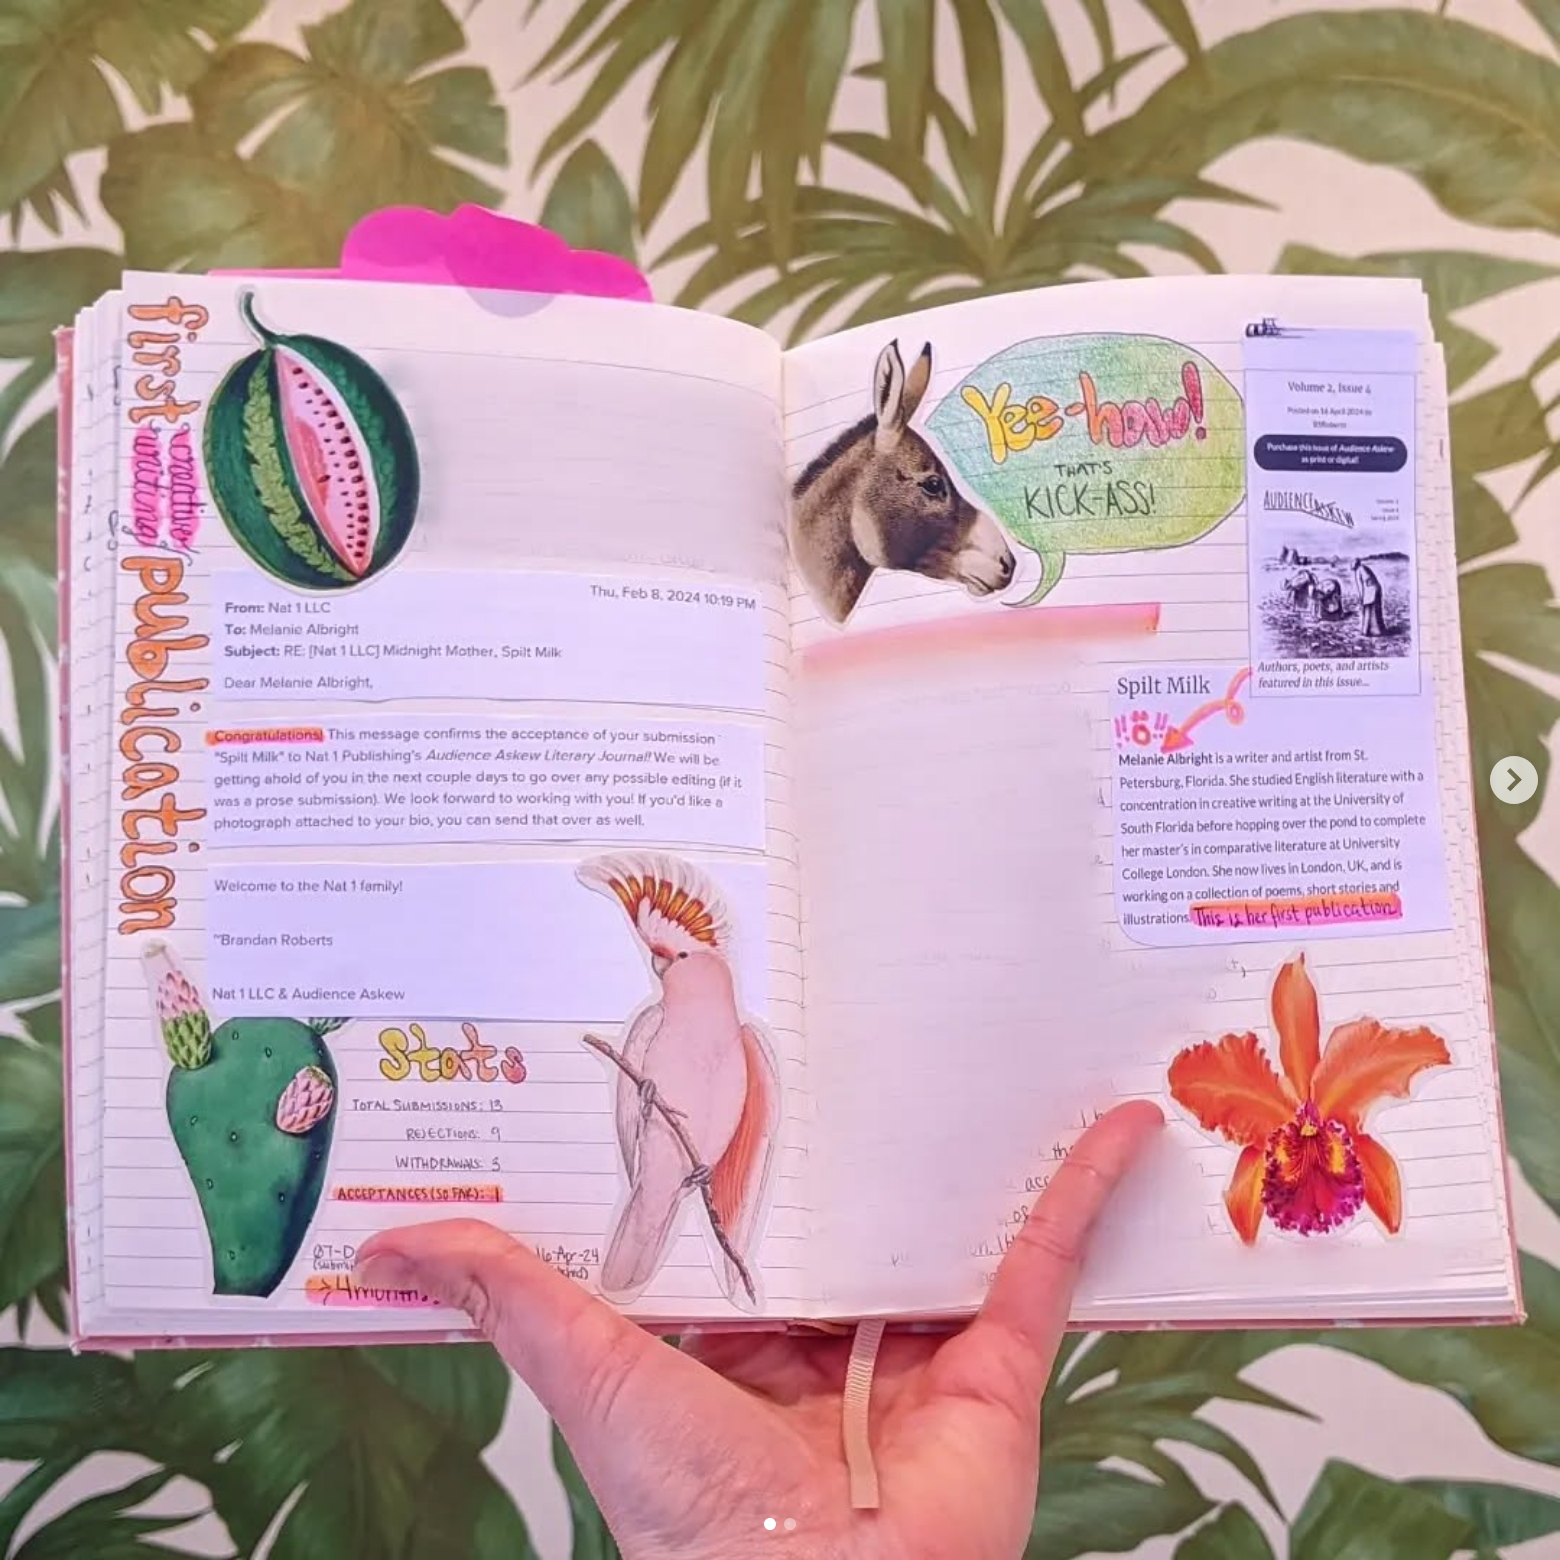 first
creative
writing
publication
Thu, Feb 8, 2024 10:19 PM
From: Nat 1 LLC
To: Melanie Albright
Subject: RE: [Nat 1 LLC] Midnight Mother, Spilt Milk
Dear Melanie Albright,
Congratulations! This message confirms the acceptance of your submission
"Spilt Milk" to Nat 1 Publishing's Audience Askew Literary Journal! We will be
getting ahold of you in the next couple days to go over any possible editing (if it
was a prose submission). We look forward to working with you! If you'd like a
photograph attached to your bio, you can send that over as well.
Welcome to the Nat 1 family!
~Brandan Roberts
Nat 1 LLC & Audience Askew
Stats
TOTAL SUBMISSIONS: 13
REJECTIONS: 9
WITHDRAWALS: 3
ACCEPTANCES (SO FAR): 1
07-D
16-Apr-24
Yee-haw!
THAT'S
KICK-ASS!
Volume 2, Issue 4
Posted on 16 April 2024 in
Purchase this issue of Audience Askew
as print or digital!
AUDIENCE ASKEW
Authors, poets, and artists
featured in this issue...
Spilt Milk
Melanie Albright is a writer and artist from St.
Petersburg, Florida. She studied English literature with a
concentration in creative writing at the University of
South Florida before hopping over the pond to complete
her master's in comparative literature at University
College London. She now lives in London, UK, and is
working on a collection of poems, short stories and
illustrations. This is her first publication